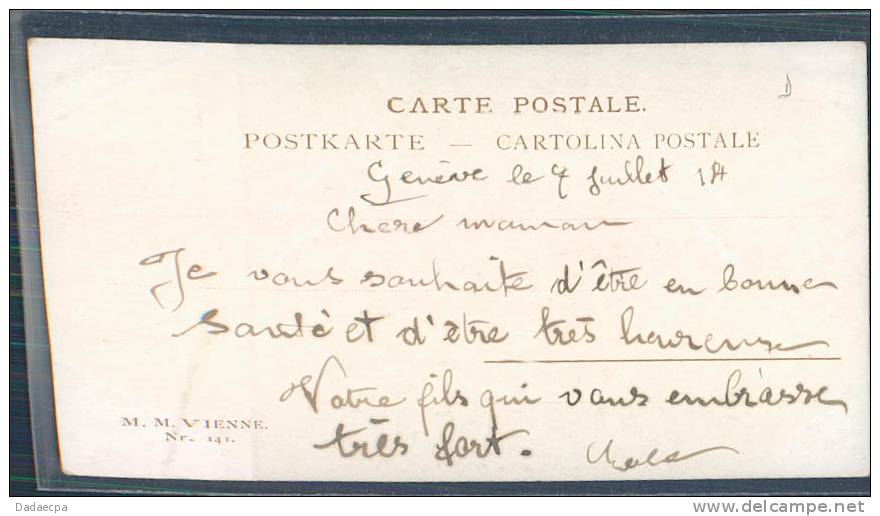 CARTE POSTALE.
POSTKARTE — CARTOLINA POSTALE
Genève le 7 Juillet 14
Chere maman
Je vous souhaite d'être en bonne
Santé et d'être très heureuse
Votre fils qui vous embrasse
très fort.
M. M. VIENNE.
Nr. 141.
Dadaecpa
www.delcampe.net